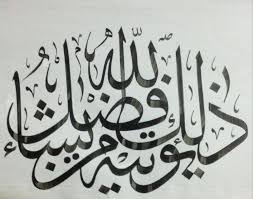 ذلك فضل الله يؤتيه من يشاء